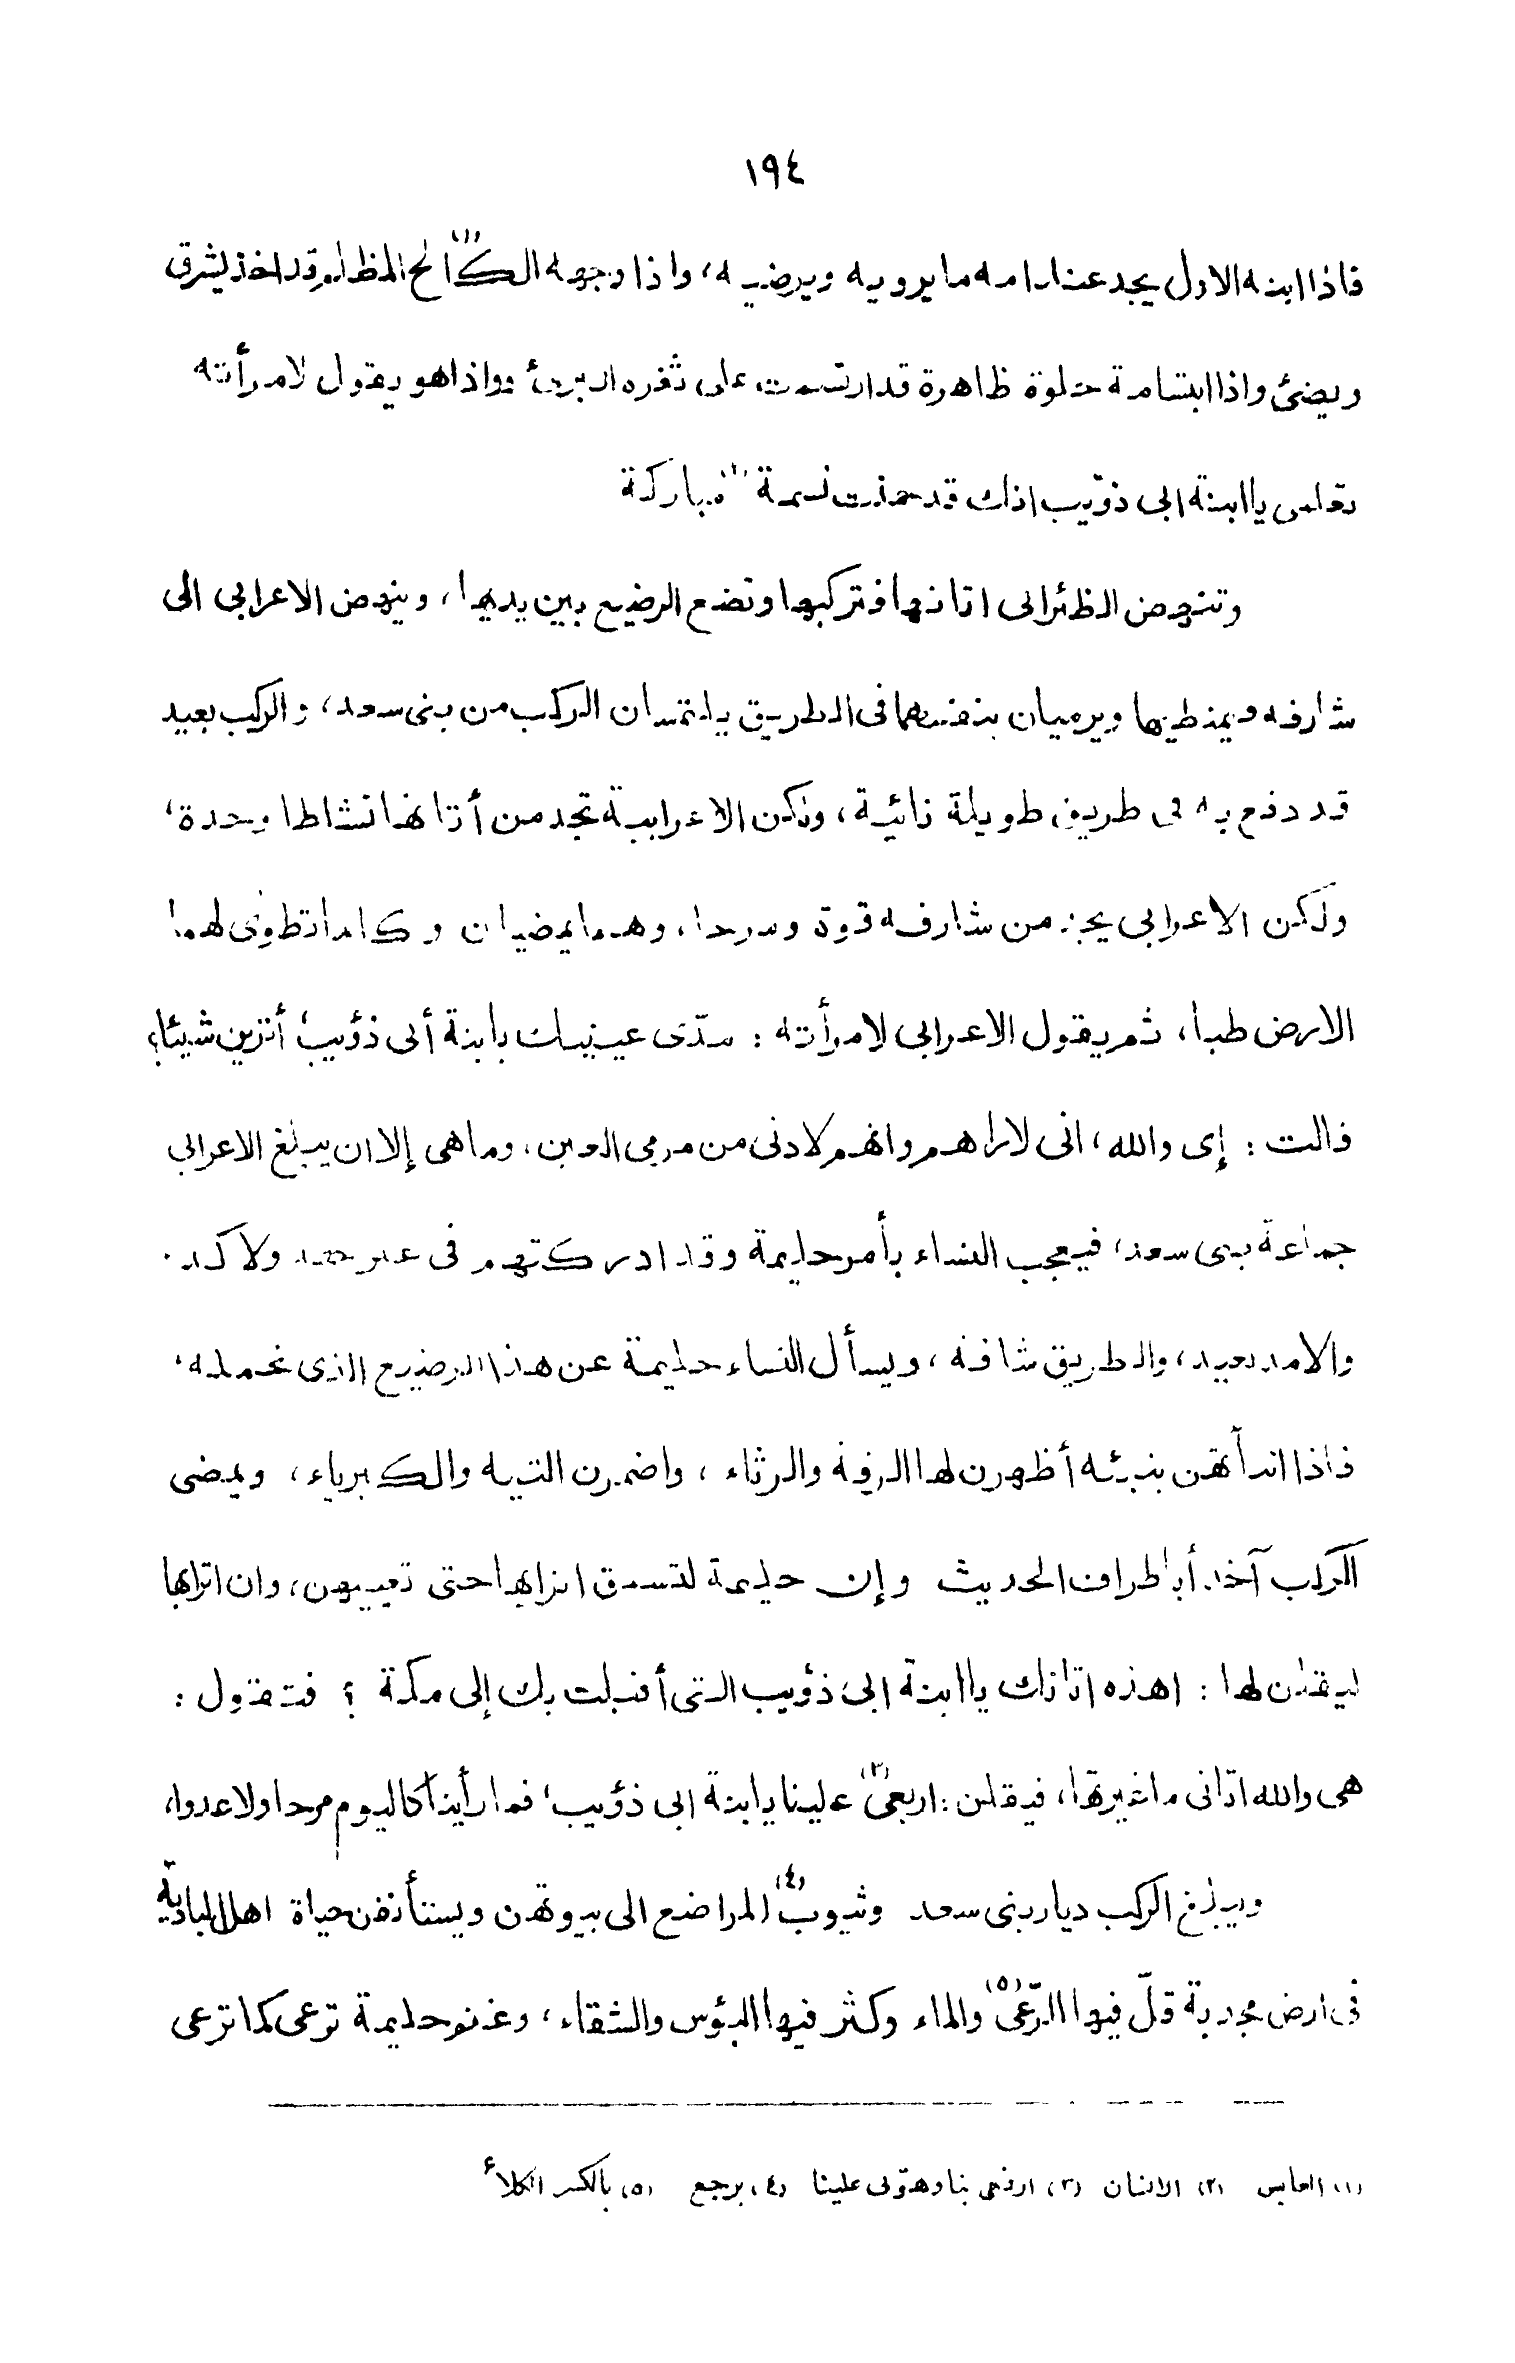 ١٩٤
فاذا ابنه الاول يجد عند امه ما يرويه ويرضيه، واذا وجهه الكالح (١) المظلم قد اخذ يشرق
ويضئ واذا ابتسامة حلوة ظاهرة قد ارتسمت على ثغره البرئ واذا هو يقول لامرأته
تعلمى يا ابنة ابى ذؤيب انك قد اخذت نسمة (٢) مباركة
وتنهض الظئر الى اتانها فتركبها وتضع الرضيع بين يديها، وينهض الاعرابى الى
شارفه ويمتطيها ويرميان بنفسهما فى الطريق يلتمسان الركب من بنى سعد، والركب بعيد
قد دفع به فى طريق طويلة نائية، ولكن الاعرابية تجد من أتانها نشاطا وحدة،
ولكن الاعرابى يجد من شارفه قوة ومرحا، وهما يمضيان وكانما تطوى لهما
الارض طيا، ثم يقول الاعرابى لامرأته : مدّى عينيك يابنة أبى ذؤيب، أترين شيئا؟
قالت : إى والله، انى لاراهم وانهم لادنى من مرمى العين، وما هى إلا ان يبلغ الاعرابى
جماعة بنى سعد، فيعجب النساء بأمر حليمة وقد ادركتهم فى غير جهد ولا كد.
والامد بعيد، والطريق شاقة، ويسأل النساء حليمة عن هذا الرضيع الذى تحمله،
فاذا انبأتهن بنبئه أظهرن لها الرقة والرثاء، واضمرن التيه والكبرياء، ويمضى
الركب آخذا بأطراف الحديث وإن حليمة لتسبق اترابها حتى تعييهن، وان اترابها
ليقلن لها : اهذه اتانك يا ابنة ابى ذؤيب التى أقبلت بك إلى مكة ؟ فتقول :
هى والله اتانى ما غيرتها، فيقلن : اربعى (٣) علينا يابنة ابى ذؤيب، فما رأينا كاليوم مرحا ولا عدوا،
ويبلغ الركب ديار بنى سعد وثيوب (٤) المراضع الى بيوتهن ويستأنفن حياة اهل البادية
فى ارض مجدبة قلّ فيها الرّعى (٥) والماء وكثر فيها البؤس والشقاء، وغنم حليمة ترعى كما ترعى
(١) العابس (٢) الانسان (٣) ارفقى بنا وهوّنى علينا (٤) يرجع (٥) بالكسر الكلأ